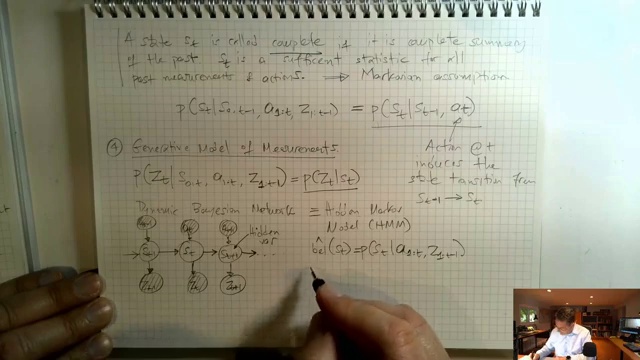 A state St is called complete if it is complete summary
of the past St is a sufficient statistic for all
past measurements & actions. ⟹ Markovian assumption
p(St|S0:t-1, a1:t, Z1:t-1) = p(St|St-1, at)
Action @ t
induces the
state transition from
St-1 → St
④ Generative Model of Measurements
p(Zt|S0:t, a1:t, Z1:t-1) = p(Zt|St)
Dynamic Bayesian Network ≡ Hidden Markov
Model (HMM)
at-1 at at+1
Hidden
var
St-1 St St+1 ...
Zt-1 Zt Zt+1
bel^(St) = p(St|a1:t, Z1:t-1)